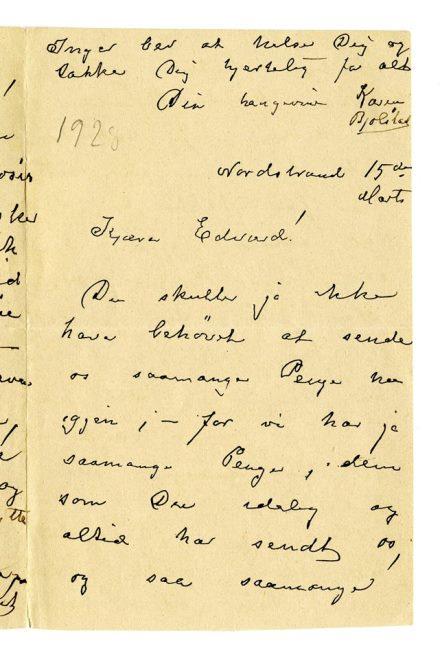 Inger ber at helse Dig og
takke Dig hjertelig for alt
Din hengivne Karen
Bjølstad
1928
Nordstrand 15de
Marts
Kjære Edvard!
Du skulle jo ikke
have behövet at sende
os saamange Penge nu
igjen ; – for vi har jo
saamange Penge, dem
som Du idelig og
altid har sendt os,
og saa saamange